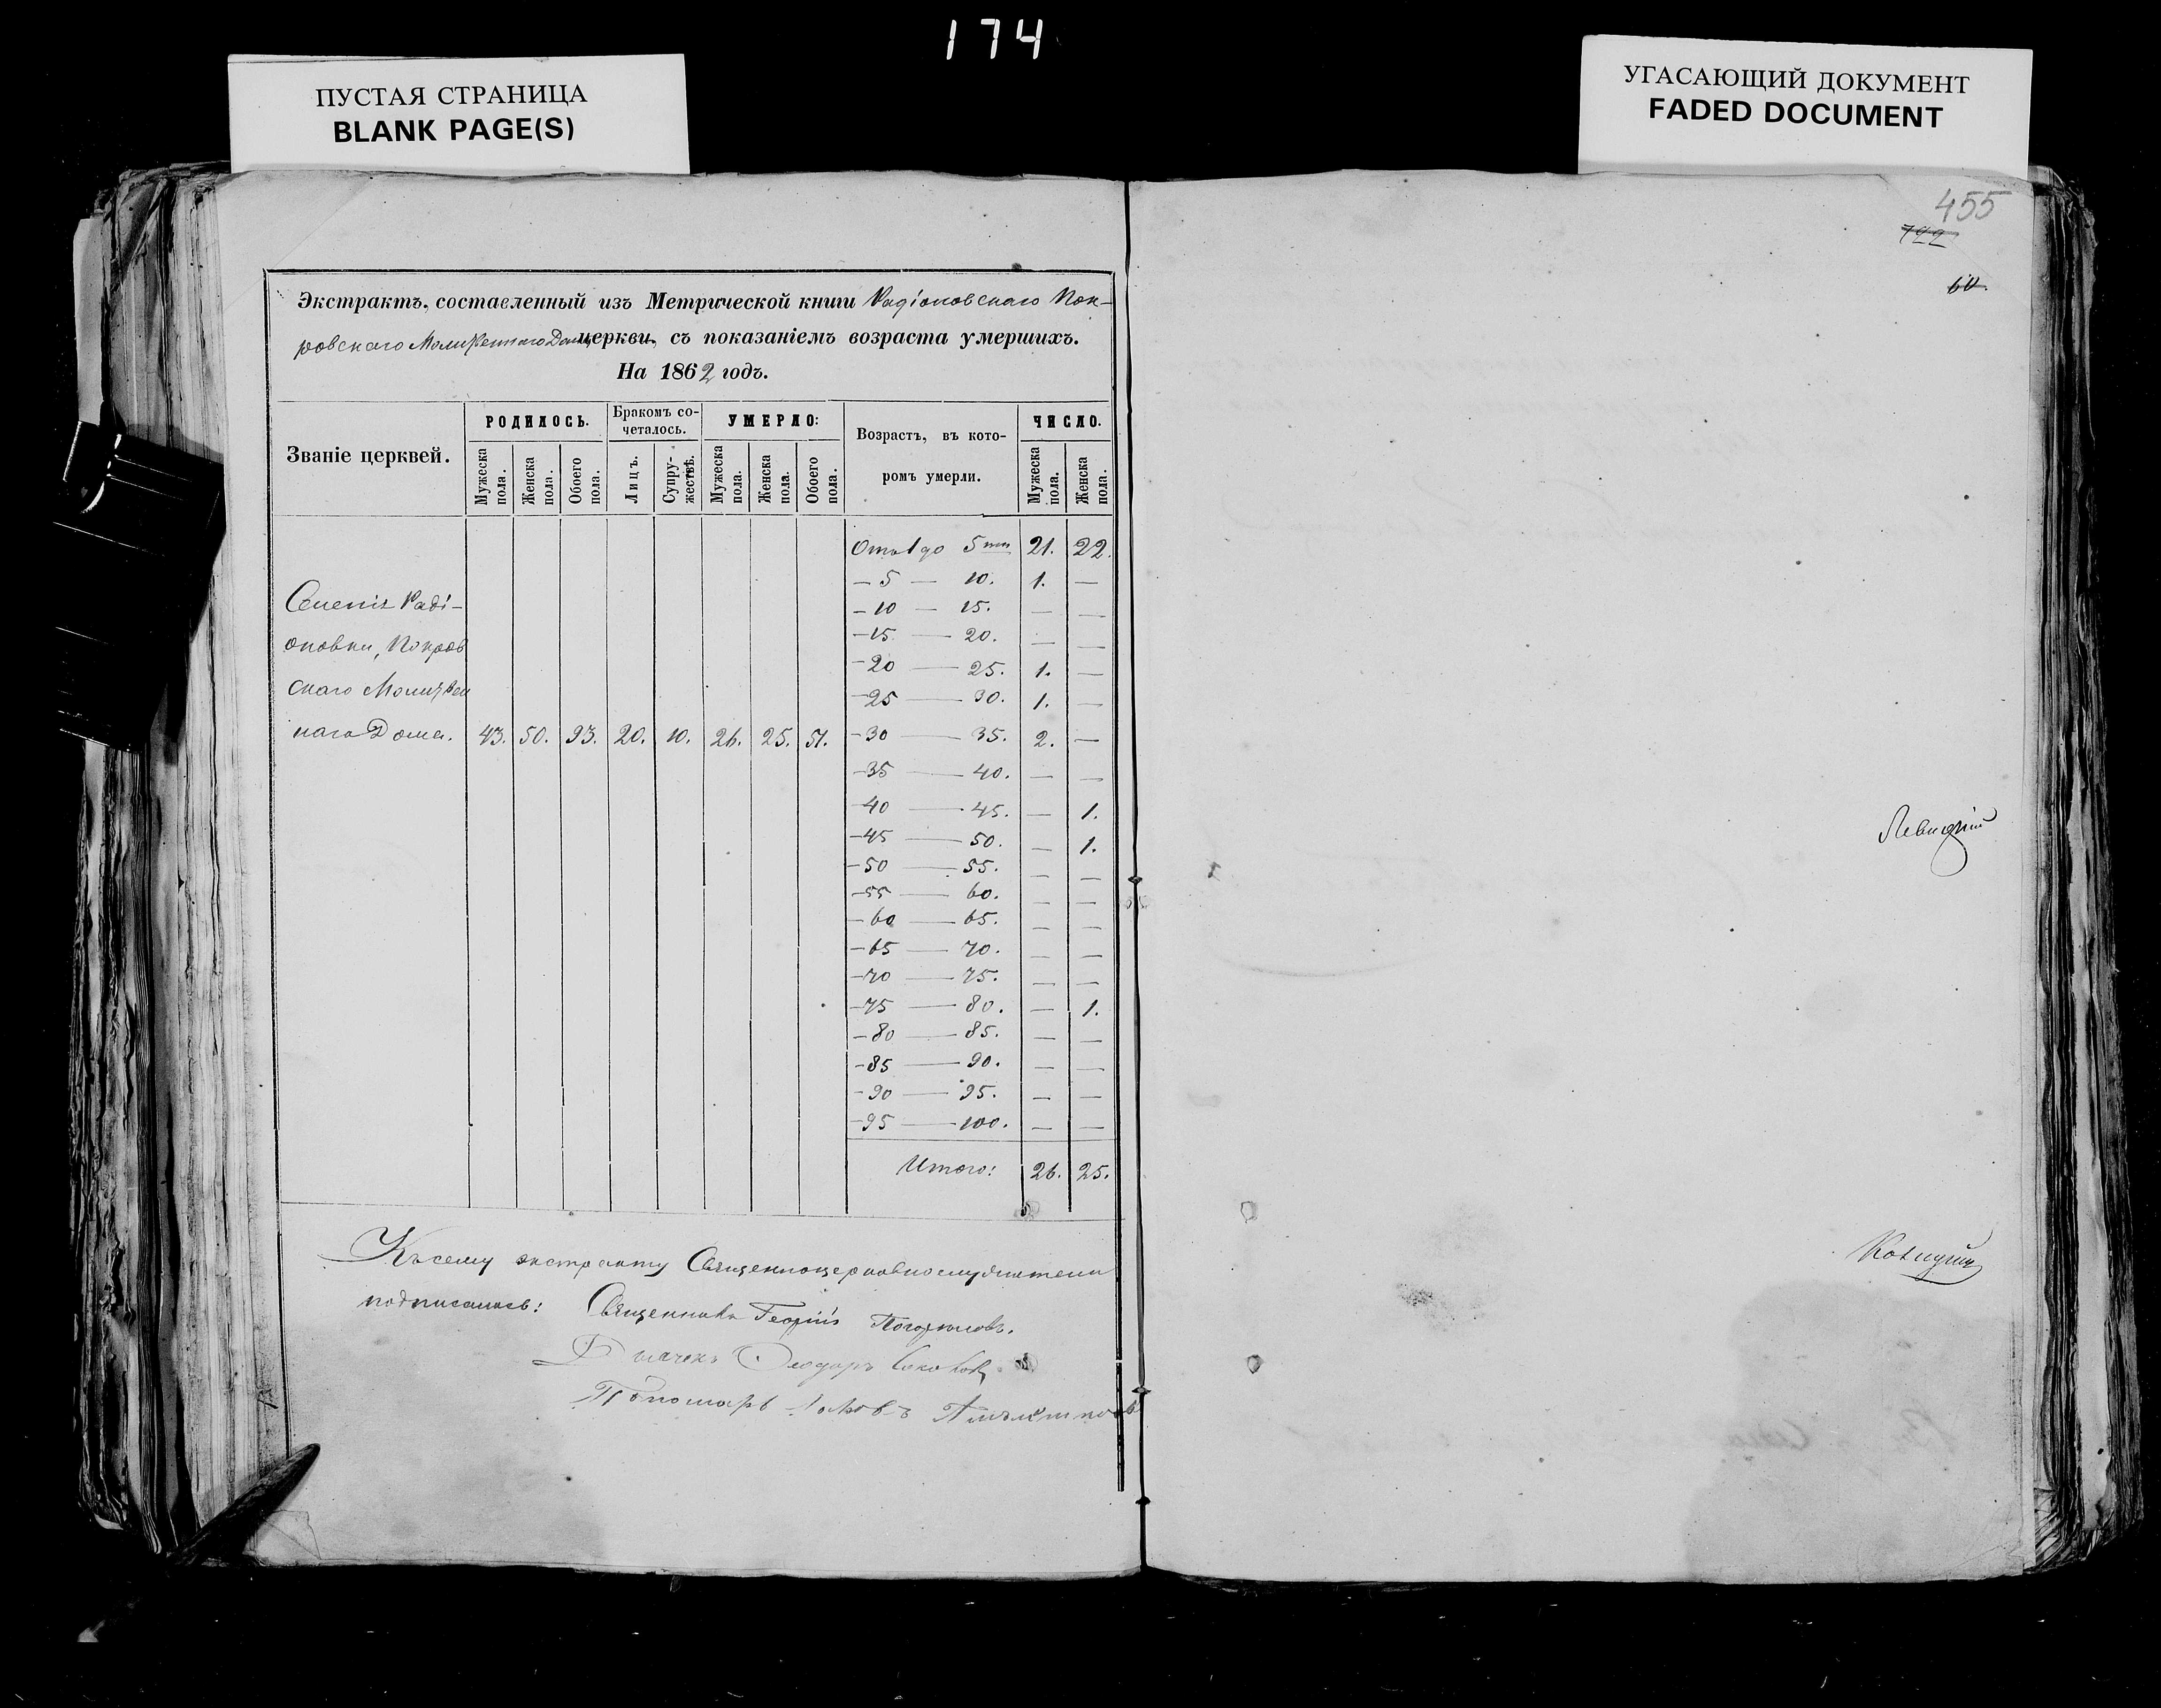 174
ПУСТАЯ СТРАНИЦА
BLANK PAGE(S)
УГАСАЮЩИЙ ДОКУМЕНТ
FADED DOCUMENT
Экстрактъ, составленный изъ Метрической книги Радіоновскаго Пок-
ровскаго Молитвеннаго Дома церкви, съ показаніемъ возраста умершихъ.
На 1862 годъ.
Званіе церквей.
РОДИЛОСЬ.
Бракомъ со-
четалось.
УМЕРЛО:
Возрастъ, въ кото-
ромъ умерли.
ЧИСЛО.
Мужеска пола.
Женска пола.
Обоего пола.
Лицъ.
Супру-жествъ.
Мужеска пола.
Женска пола.
Обоего пола.
Мужеска пола.
Женска пола.
Отъ 1 до 5 21. 22.
— 5 — 10. 1. —
— 10 — 15. — —
— 15 — 20. — —
— 20 — 25. 1. —
— 25 — 30. 1. —
Селенія Раді-
оновки, Покров
скаго Молитвен
наго Дома. 43. 50. 93. 20. 10. 26. 25. 51. — 30 — 35. 2. —
— 35 — 40. — —
— 40 — 45. — 1.
— 45 — 50. — 1.
— 50 — 55. — —
— 55 — 60. — —
— 60 — 65. — —
— 65 — 70. — —
— 70 — 75. — —
— 75 — 80. — 1.
— 80 — 85. — —
— 85 — 90. — —
— 90 — 95. — —
— 95 — 100. — —
Итого: 26. 25.
Къ сему экстракту Священноцерковнослужители
подписались: Священникъ Георгій
Дьячекъ
Пономарь
455
722
60.
Левицкій